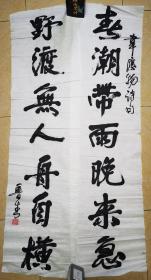 春潮帶雨晚來急
韋應物詩句
野渡無人舟自橫